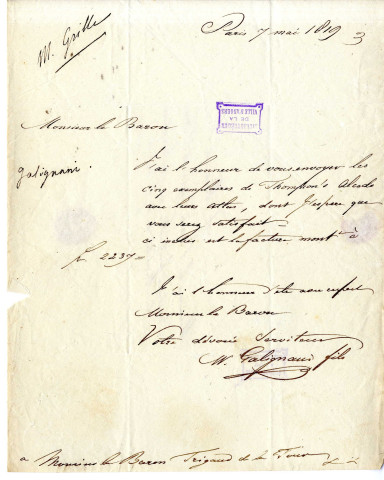 M. Grille
Paris 7 mai 1819
3
Monsieur le Baron
galignani.
J'ai l'honneur de vous envoyer les
cinq exemplaires de Thompson's Alcedo
avec leurs atlas, dont j'espere que
vous serez satisfait
ci incluse est la facture mont.t à
2237 =
J'ai l'honneur d'etre avec respect
Monsieur le Baron
Votre dévoué Serviteur
W. Galignani fils
a Monsieur le Baron Trigaud de la Tour